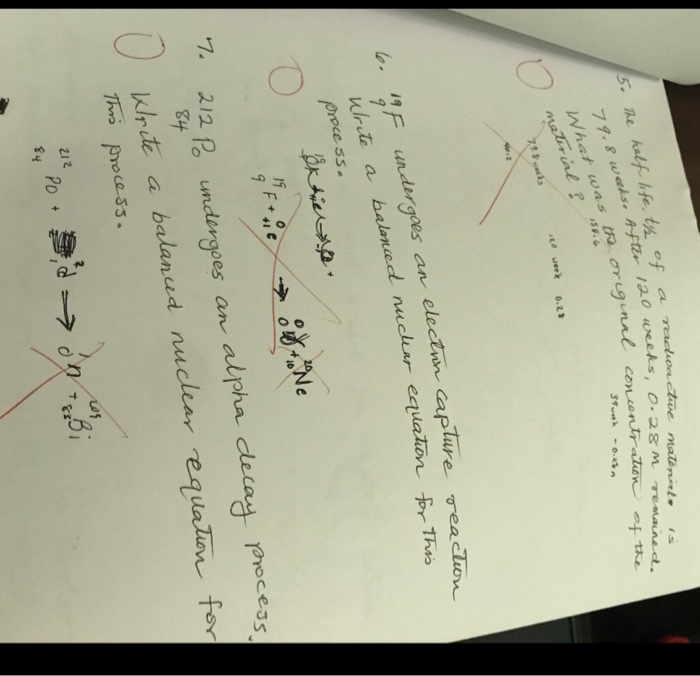 5. The half life t½ of a radioactive material is
79.8 weeks. After 120 weeks, 0.28 M remained.
What was the original concentration of the
material?
158.6
79.8 weeks
120 week 0.28
6. 19 9 F undergoes an electron capture reaction
Write a balanced nuclear equation for this
process.
19 9 F + 0 +1 e → 0 0 + 20 10 Ne
7. 212 84 Po undergoes an alpha decay process.
Write a balanced nuclear equation for
this process.
212 84 Po + 2 1 d → 1 0 n + 83 Bi